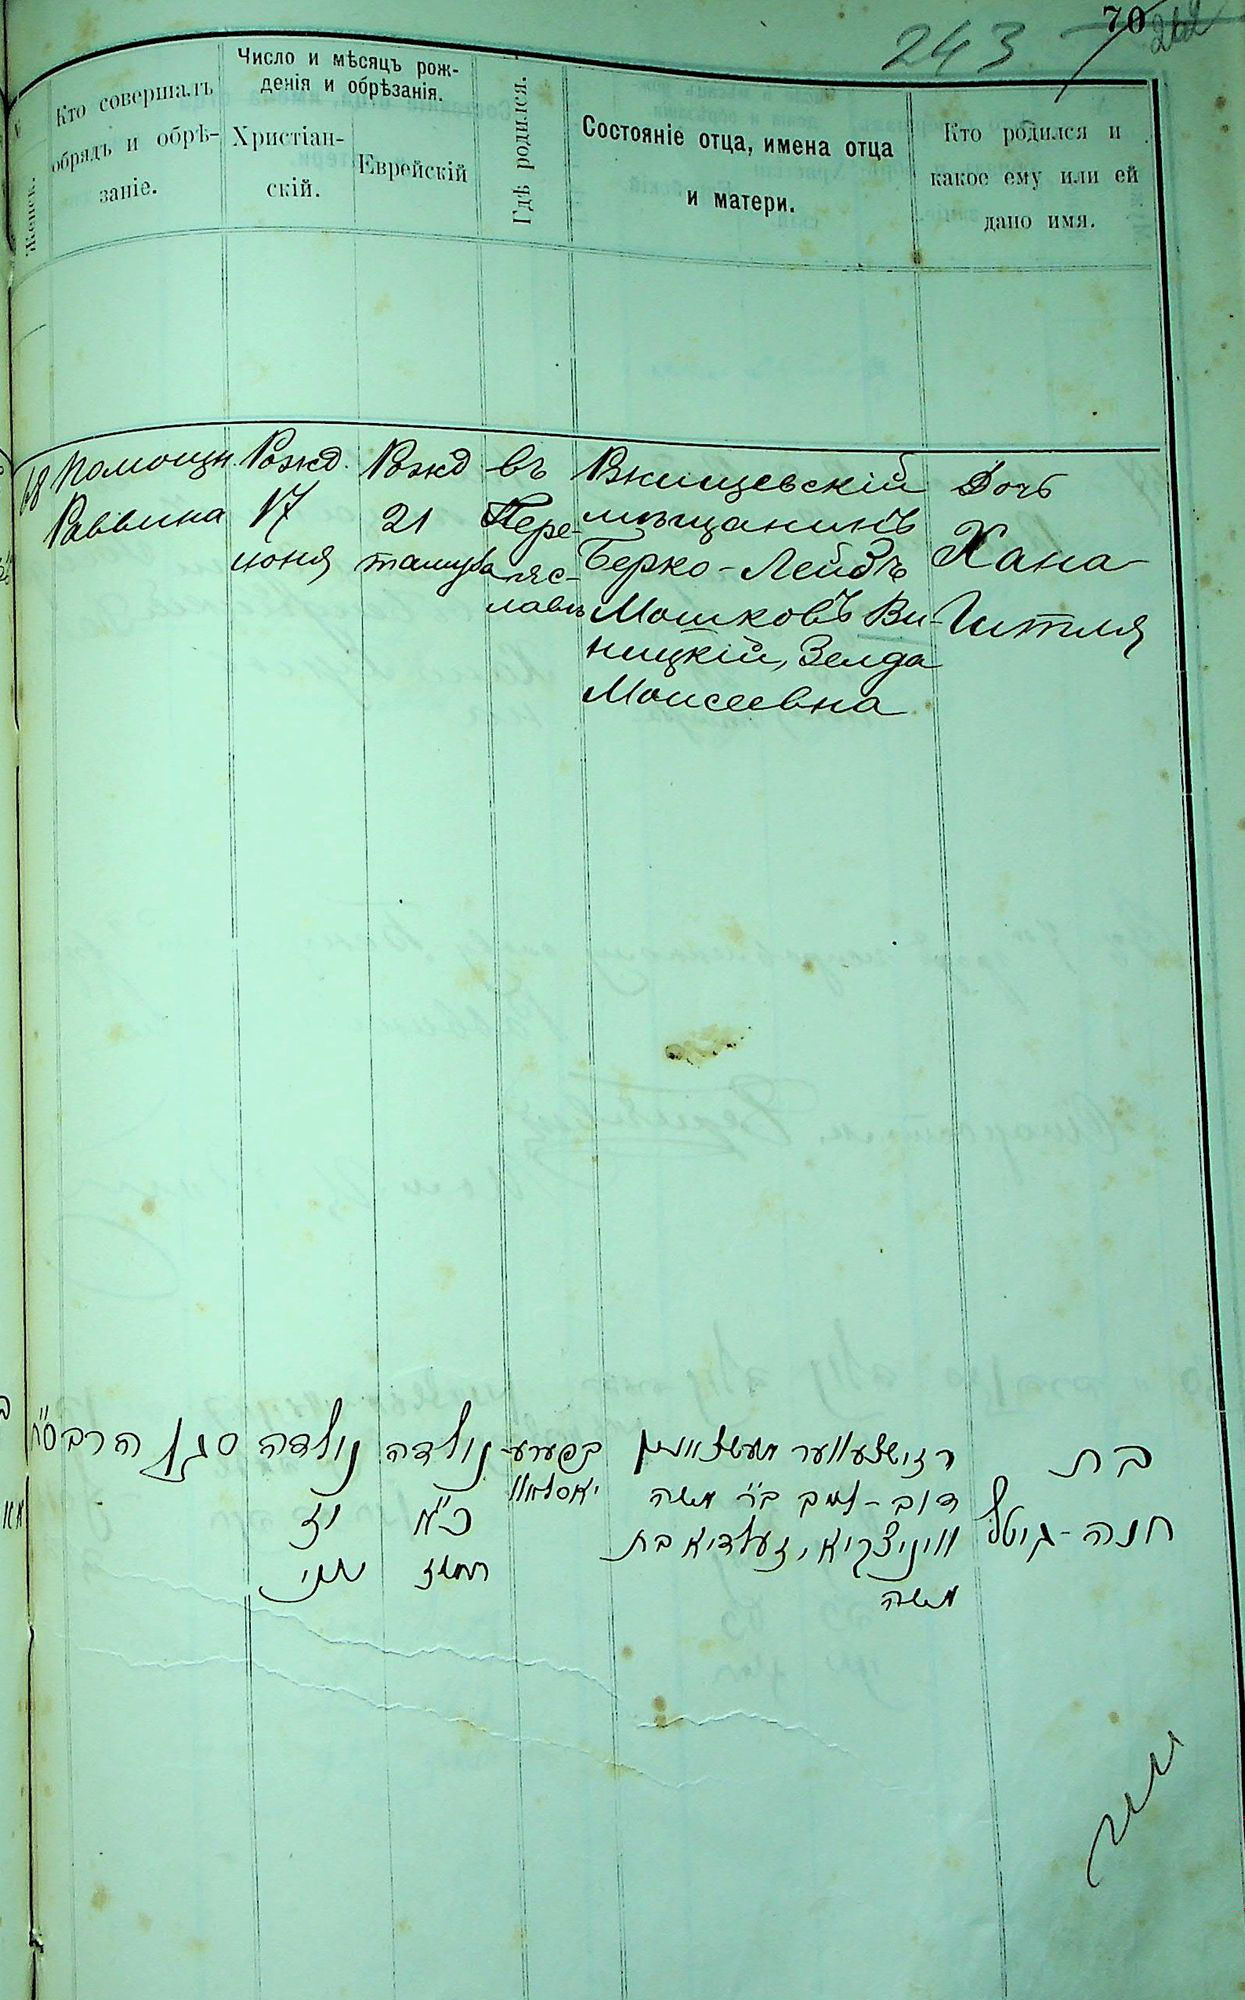 243 70
Женск.
Кто совершалъ
обрядъ и обрѣ-
заніе.
Число и мѣсяцъ рож-
денія и обрѣзанія.
Христіан-
скій.
Еврейскій
Гдѣ родился.
Состояніе отца, имена отца
и матери.
Кто родился и
какое ему или ей
дано имя.
68
Помощн.
Раввина
Рожд.
17
іюня
Рожд
21
тамуза
въ
Пере-
яс-
лавлѣ
Ржищевскій
мѣщанинъ
Берко-Лейбъ
Мошковъ Ви-
ницкій, Зелда
Моисеевна
Дочь
Хана
Гитля
סגן הרב
נולדה
יז
יוני
נולדה
כ"א
תמוז
בפערע-
יאסלאוו
רזישצעווער
דוב-ליב ב"ר משה
וויניצקיא, זעלדיא בת
משה
בת
חנה-גיטל